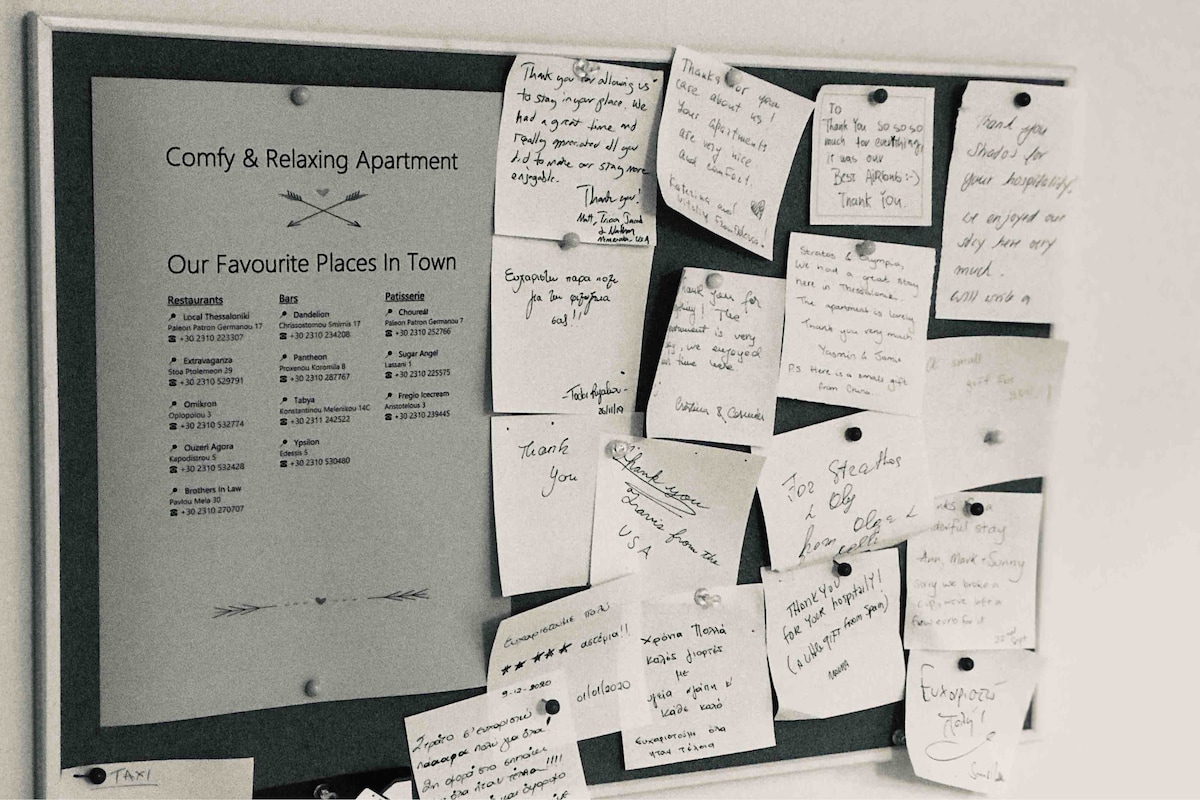 Comfy & Relaxing Apartment
Our Favourite Places In Town
Restaurants
Local Thessaloniki
Paleon Patron Germanou 17
+30 2310 223307
Extravaganza
Stoa Ptolemeon 29
+30 2310 529791
Omikron
Oplopoiou 3
+30 2310 532774
Ouzeri Agora
Kapodistriou 5
+30 2310 532428
Brothers In Law
Pavlou Mela 30
+30 2310 270707
Bars
Dandelion
Chrissostomou Smirnis 17
+30 2310 234208
Pantheon
Proxenou Koromila 8
+30 2310 287767
Tabya
Konstantinou Melenikou 14C
+30 2311 242522
Ypsilon
Edessis 5
+30 2310 530480
Patisserie
Choureál
Paleon Patron Germanou 7
+30 2310 252766
Sugar Angel
Lassani 1
+30 2310 225575
Fregio Icecream
Aristotelous 3
+30 2310 239445
TAXI
Thank you for allowing us
to stay in your place. We
had a great time and
really appreciated all you
did to make our stay more
enjoyable.
Thank you!
Matt,
& Nathan
Minnesota, USA
Thanks for you
care about us!
Your apartments
are very nice
and comfort.
Katerina and
Vitaliy from Odessa!
TO
Thank You so so so
much for everything!
it was our
Best AirBnb :-)
Thank You.
Thank you
Stratos for
your hospitality.
We enjoyed our
stay here very
much.
will write a
Ευχαριστω παρα πολυ
για την φιλοξενια
σας!!
26/11/19
Thank you for
The
is very
we enjoyed
time here
Cristina &
Stratos & Olympia,
We had a great stay
here in Thessaloniki.
The apartment is lovely
Thank you very much
Yasmin & Jamie
P.S Here is a small gift
from China.
a small
gift
Thank
You
Thank you
Travis from the
USA
For Strathos
& Oly
from Olga &
a
wonderful stay
Ann, Mark + Sunny
sorry we broke a
cup, have left a
few euro for it
Ευχαριστούμε πολύ
★★★★★ αστέρια!!
01/01/2020
Χρόνια Πολλά
Καλές γιορτές
με
υγεία αγάπη κ'
κάθε καλό
Ευχαριστούμε όλα
ήταν τέλεια
THANK YOU
FOR YOUR hospitality!
(A little gift from Spain)
Ευχαριστώ
πολύ!
9-12-2020
Στράτο σ' ευχαριστώ
πάααρα πολύ για όλα!
όλα ήταν τέλεια!!!!